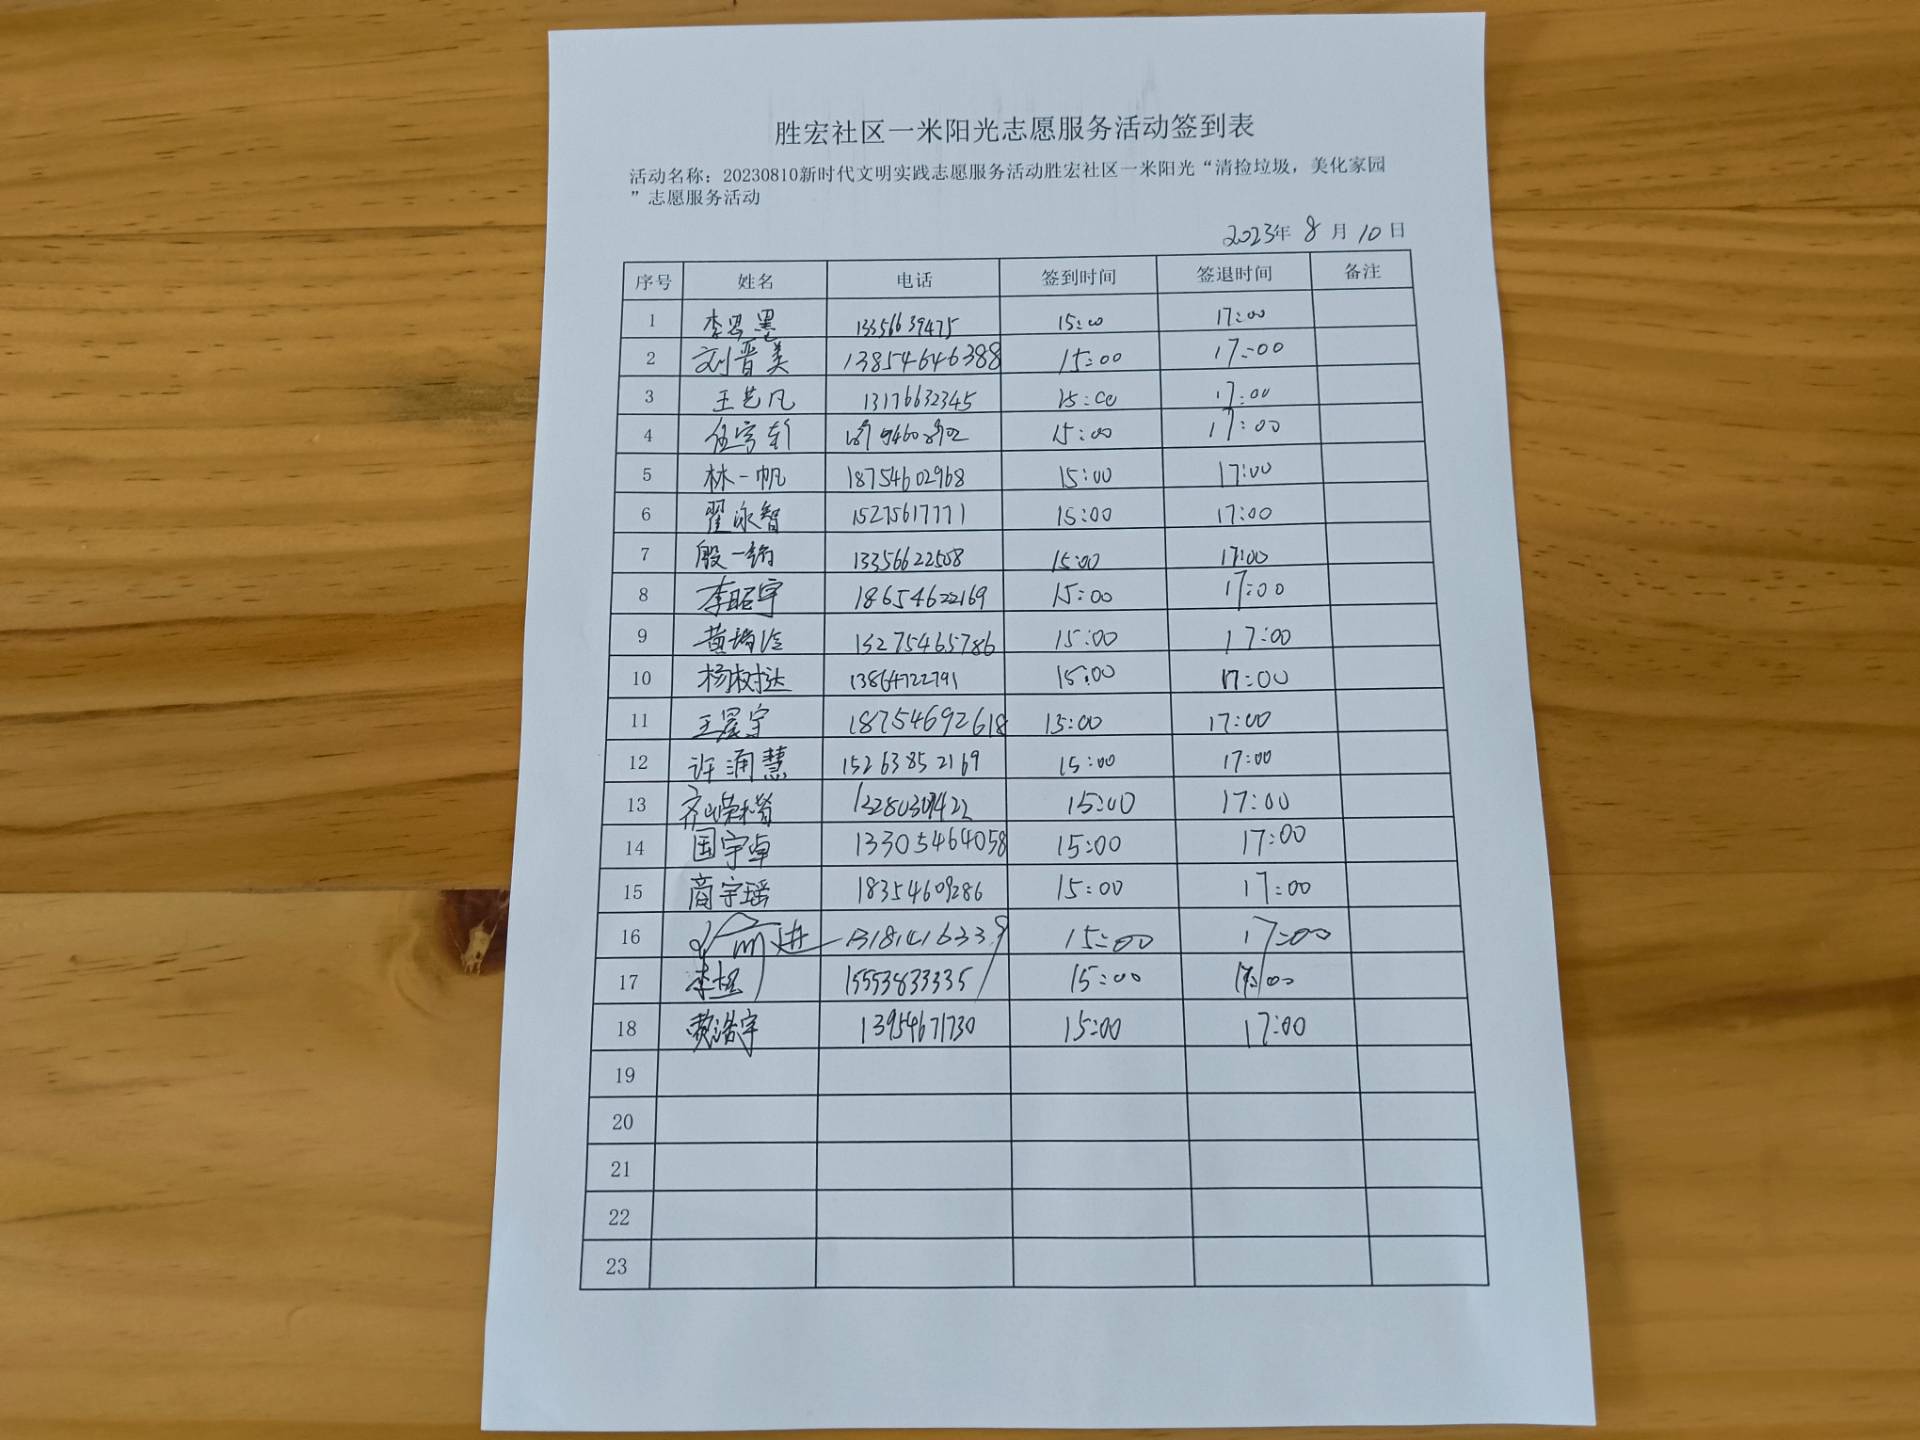 胜宏社区一米阳光志愿服务活动签到表
活动名称：20230810新时代文明实践志愿服务活动胜宏社区一米阳光“清捡垃圾，美化家园
”志愿服务活动
2023年 8 月 10 日
序号 姓名 电话 签到时间 签退时间 备注
1 李思墨 13356639475 15:00 17:00
2 刘晋美 13854646388 15:00 17:00
3 王艺凡 13176632345 15:00 17:00
4 15:00 17:00
5 林一帆 18754602968 15:00 17:00
6 翟永智 15275617771 15:00 17:00
7 殷一 13356622508 15:00 17:00
8 李昭宇 18654622169 15:00 17:00
9 黄 15275465786 15:00 17:00
10 杨树达 13864722791 15:00 17:00
11 王晨宇 18754692618 15:00 17:00
12 许涌慧 15263852169 15:00 17:00
13 15:00 17:00
14 国宇卓 13305464058 15:00 17:00
15 商宇瑶 18354609286 15:00 17:00
16 15:00 17:00
17 15553833335 15:00 17:00
18 浩宇 13954671730 15:00 17:00
19
20
21
22
23